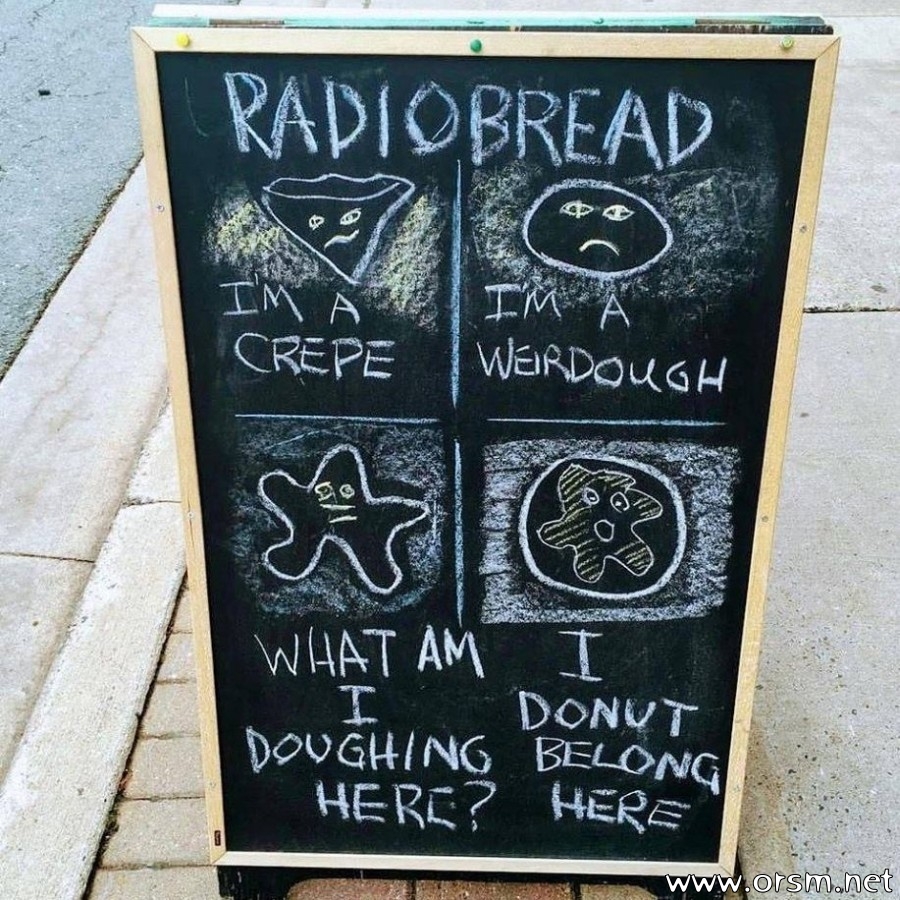 RADIOBREAD
I'M A
CREPE
I'M A
WEIRDOUGH
WHAT AM
I
DOUGHING
HERE?
I
DONUT
BELONG
HERE
www.orsm.net